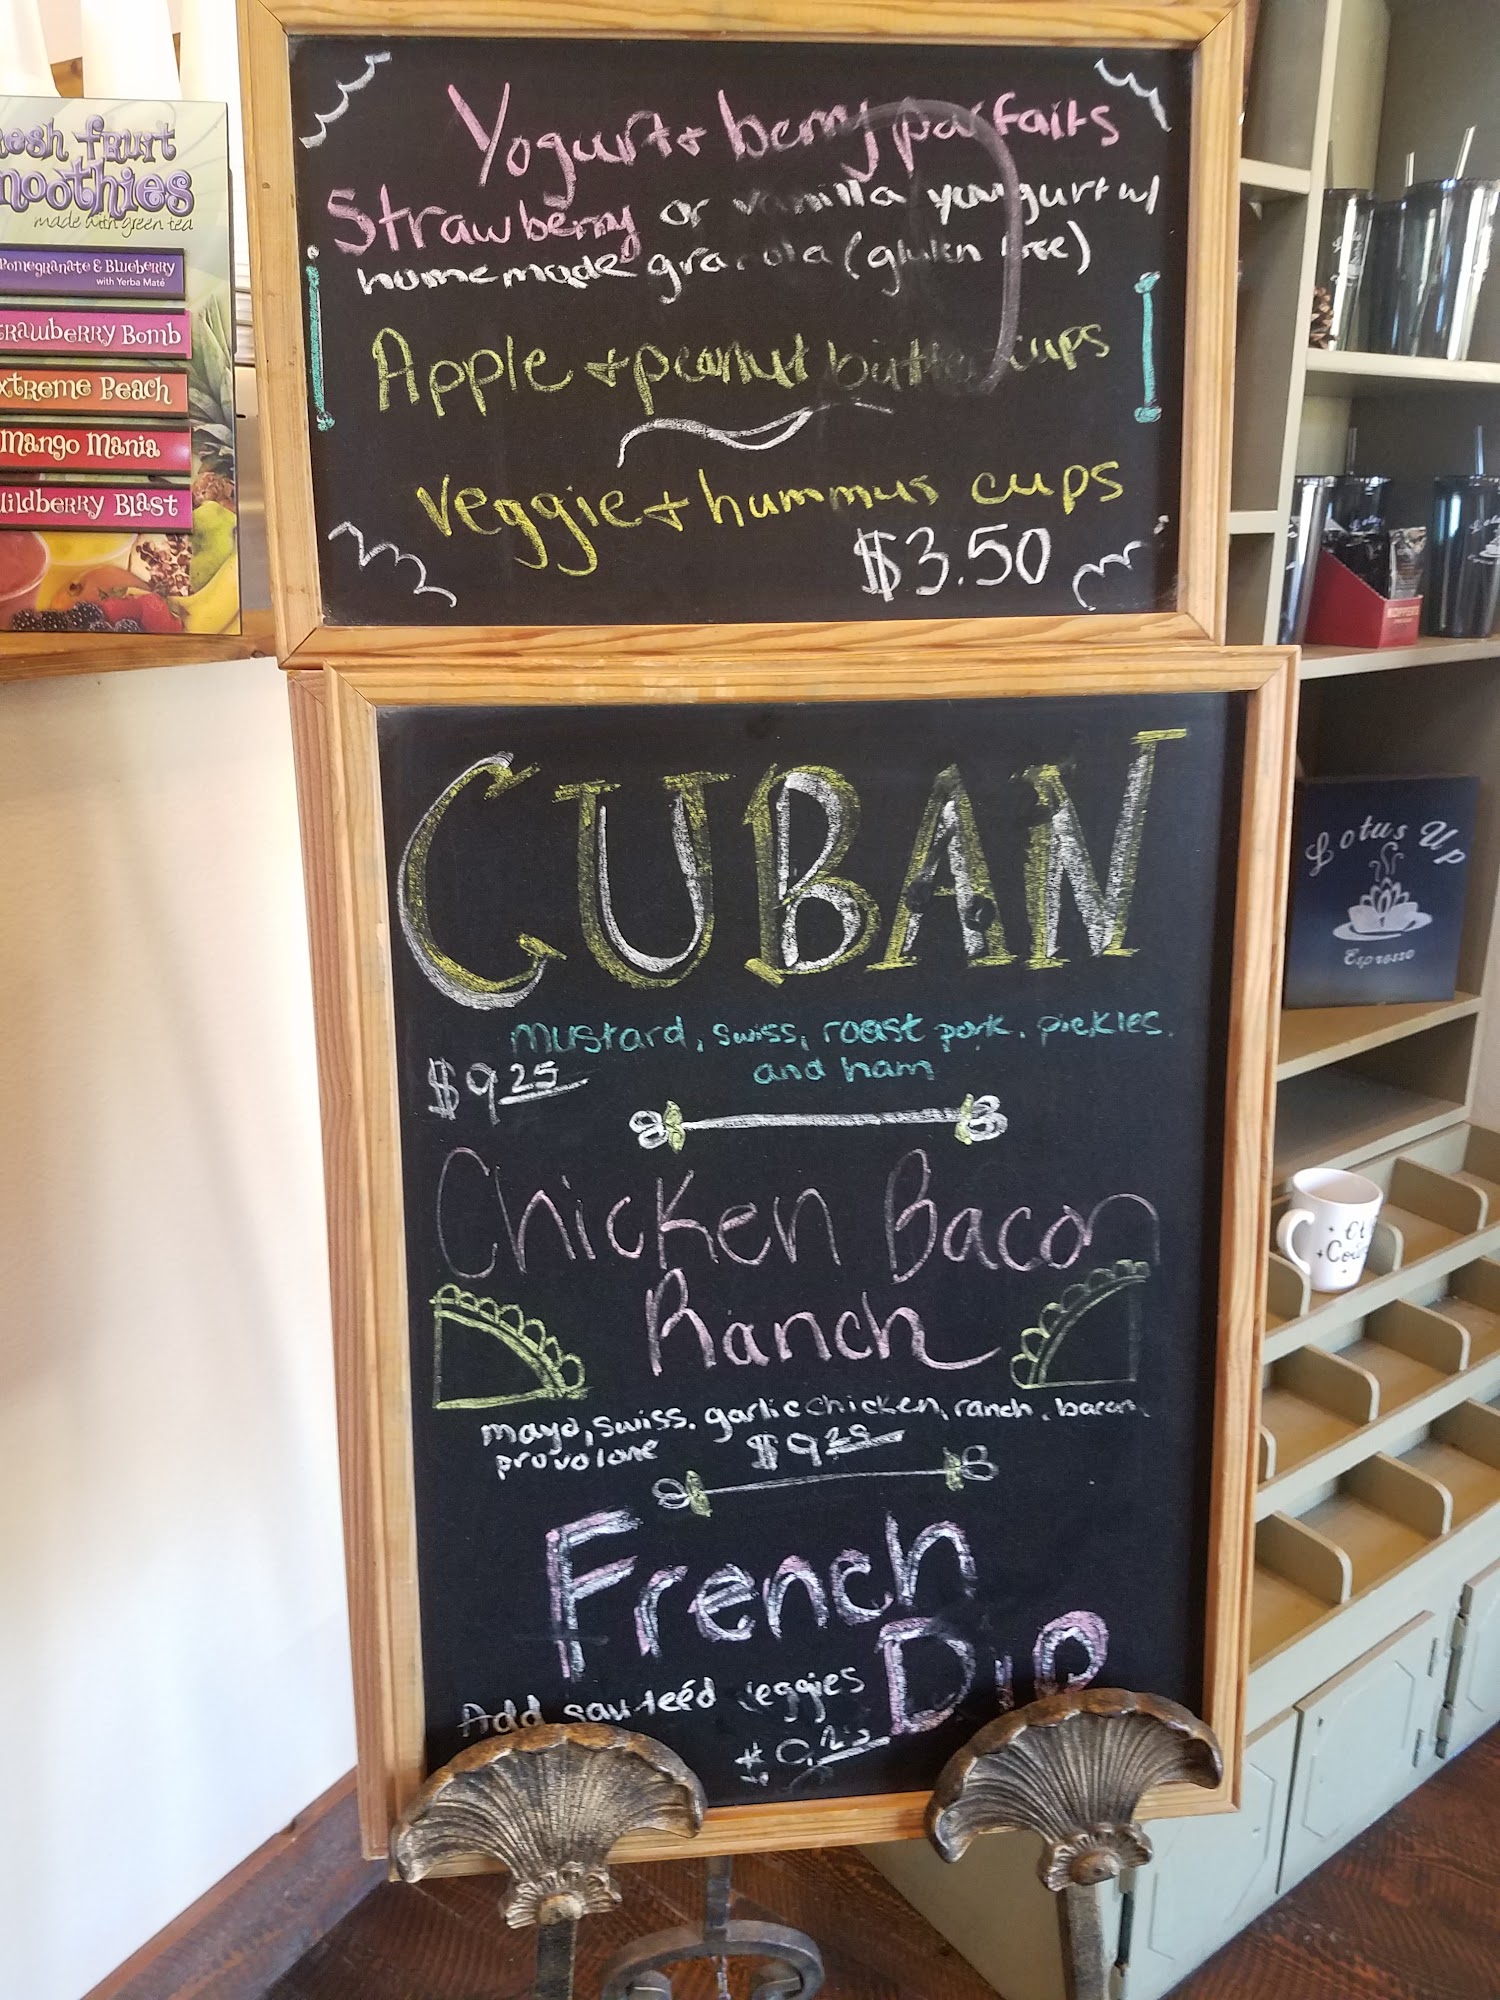 Yogurt + berry parfaits
Strawberry or vanilla yougurt w/
homemade granola (gluten free)
Apple + peanut butter cups
veggie + hummus cups
$3.50
CUBAN
mustard, swiss, roast pork, pickles,
and ham
$9.25
Chicken Bacon
Ranch
mayo, swiss, garlic chicken, ranch, bacon,
provolone
$9.25
French
Dip
Add sauteéd veggies
fruit
made with green tea
Pomegranate & Blueberry
with Yerba Maté
Bomb
Peach
Mango Mania
Blast
Lotus Up
Espresso